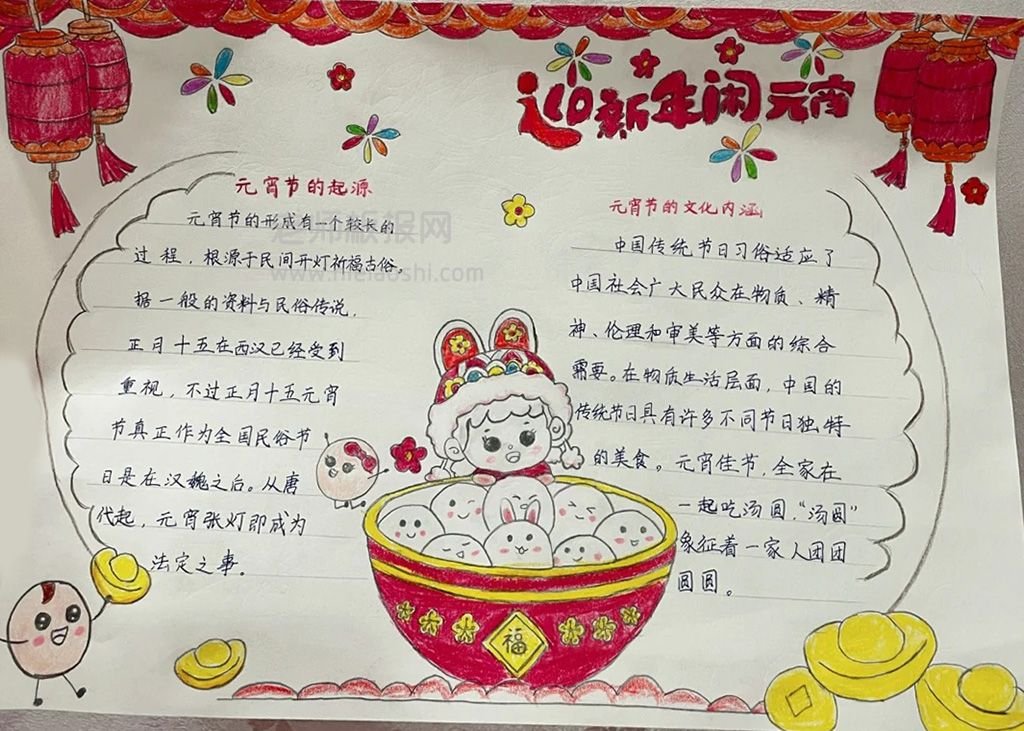 迎新年闹元宵
元宵节的起源
元宵节的形成有一个较长的
过程，根源于民间开灯祈福古俗。
据一般的资料与民俗传说，
正月十五在西汉已经受到
重视，不过正月十五元宵
节真正作为全国民俗节
日是在汉魏之后。从唐
代起，元宵张灯即成为
法定之事。
老师板报网
www.meiaoshi.com
元宵节的文化内涵
中国传统节日习俗适应了
中国社会广大民众在物质、精
神、伦理和审美等方面的综合
需要。在物质生活层面，中国的
传统节日具有许多不同节日独特
的美食。元宵佳节，全家在
一起吃汤圆，“汤圆”
象征着一家人团团
圆圆。
福